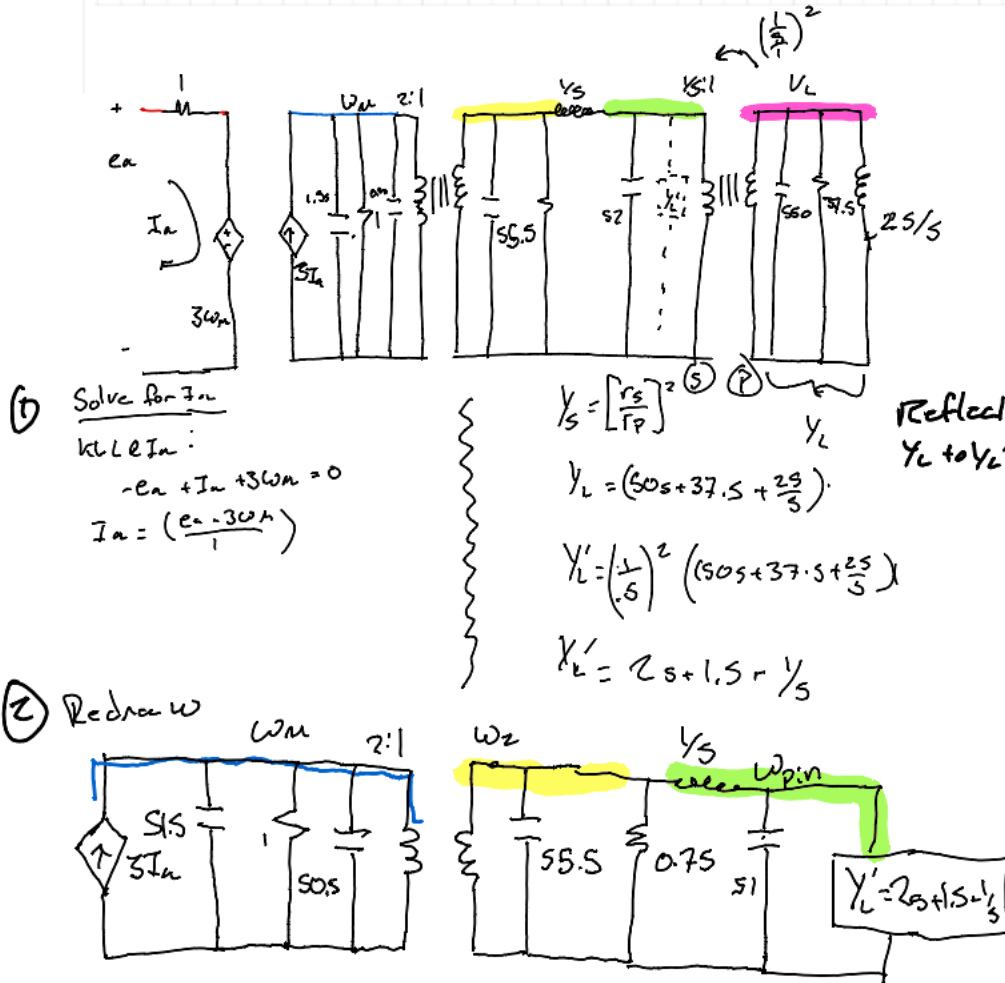 (1/5/1)²
1
ωm
2:1
1/s
1/5:1
VL
+
ea
Ia
-
3ωm
3Ia
1
s5.5
s2
YL'
s50
37.5
25/s
S
P
YL
①
Solve for Ia
KVL @ Ia :
-ea + Ia + 3ωm = 0
Ia = (ea - 3ωm / 1)
Ys = [rs/rp]²
YL = (50s + 37.5 + 25/s).
YL' = (.1/.5)² ((50s + 37.5 + 25/s)
YL' = 2s + 1.5 + 1/s
Reflect
YL to YL'
② Redraw
ωm
2:1
ω2
1/s
ωpin
3Ia
s1.5
1
s0.5
s5.5
0.75
s1
YL' = 2s+1.5+1/s